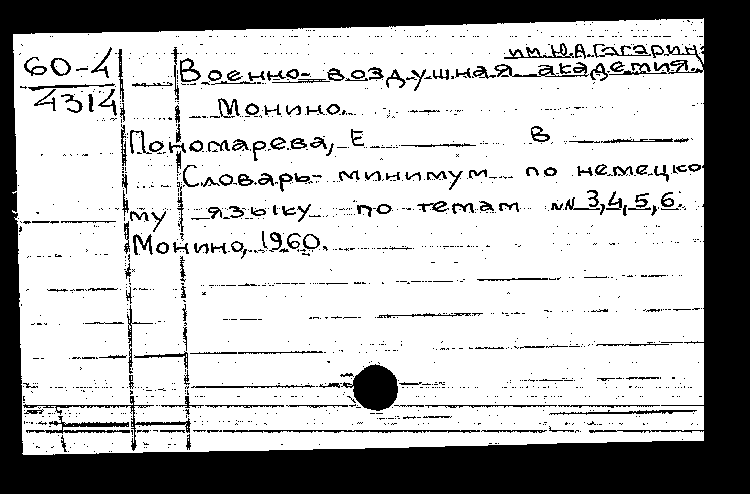 60-4
4314
им. Ю.А.Гагарин
Военно-воздушная академия.
Монино.
Пономарева, Е В
Словарь-минимум по немецко-
му языку по темам №№ 3,4,5,6.
Монино, 1960.